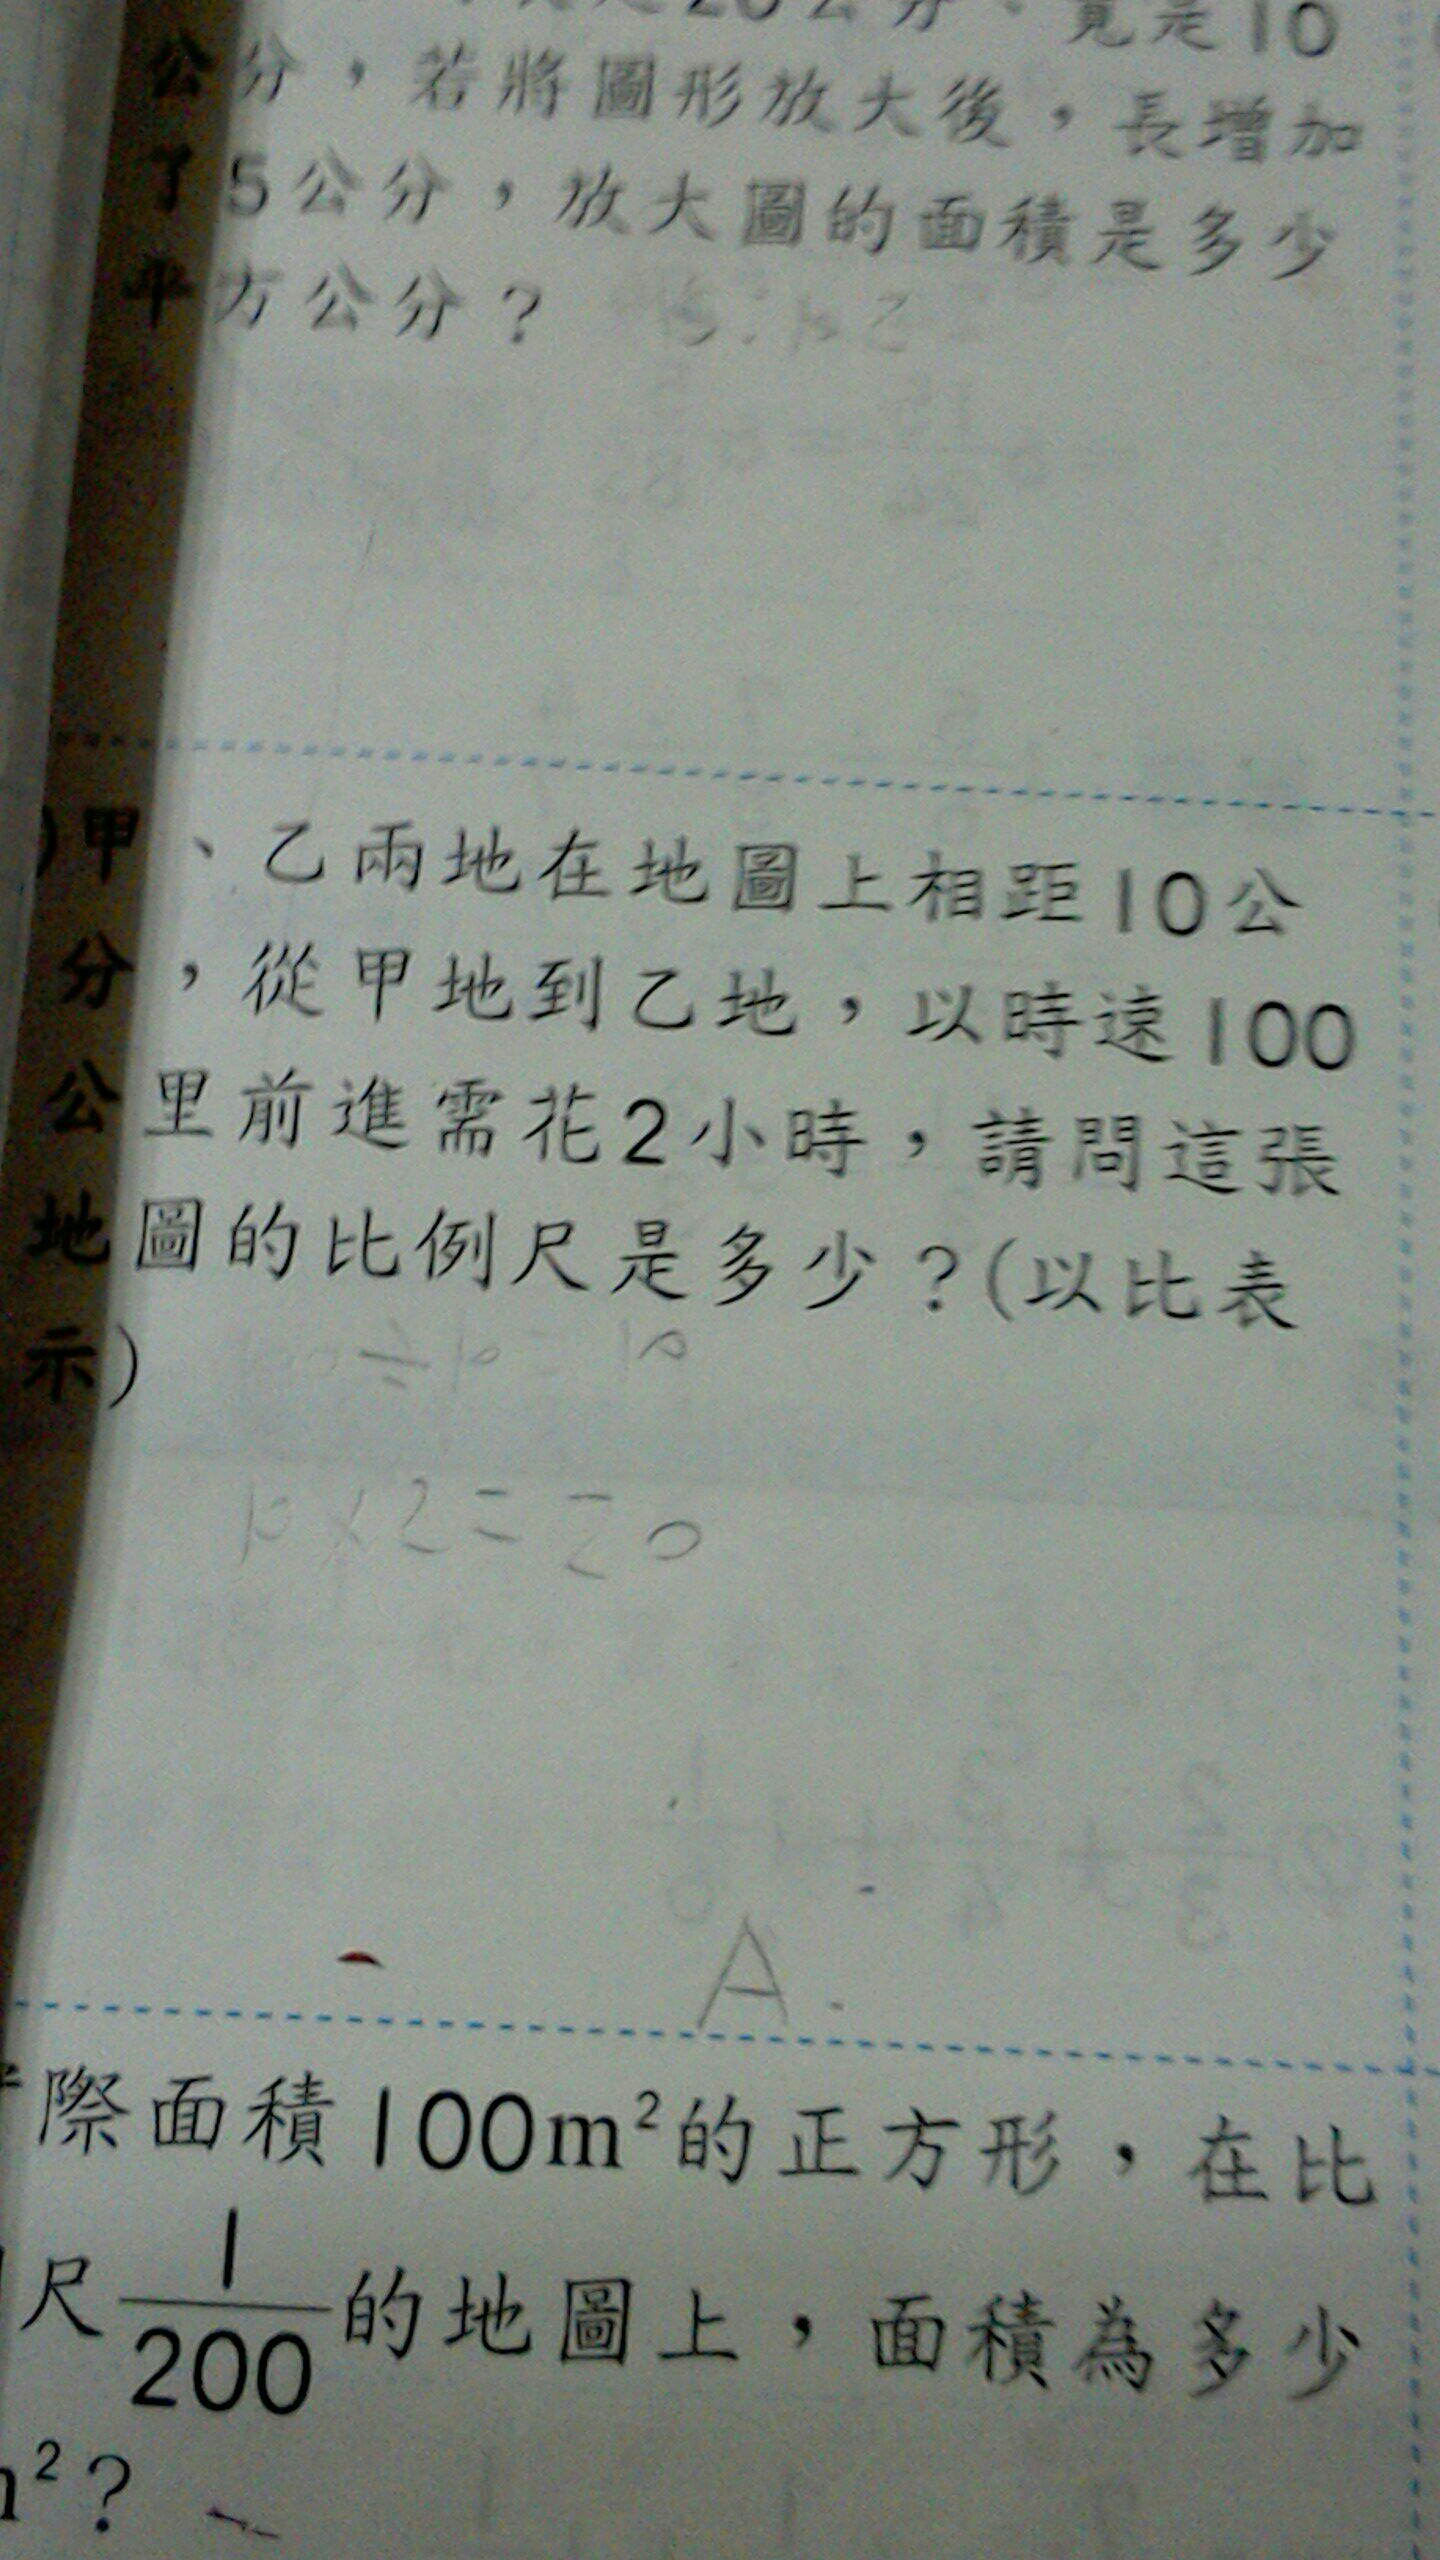 20公分、寬是10
公分，若將圖形放大後，長增加
了5公分，放大圖的面積是多少
平方公分？
)甲、乙兩地在地圖上相距10公
分，從甲地到乙地，以時速100
公里前進需花2小時，請問這張
地圖的比例尺是多少？(以比表
示)
÷10=10
10×2=20
A.
際面積100m²的正方形，在比
尺1/200的地圖上，面積為多少
m²？